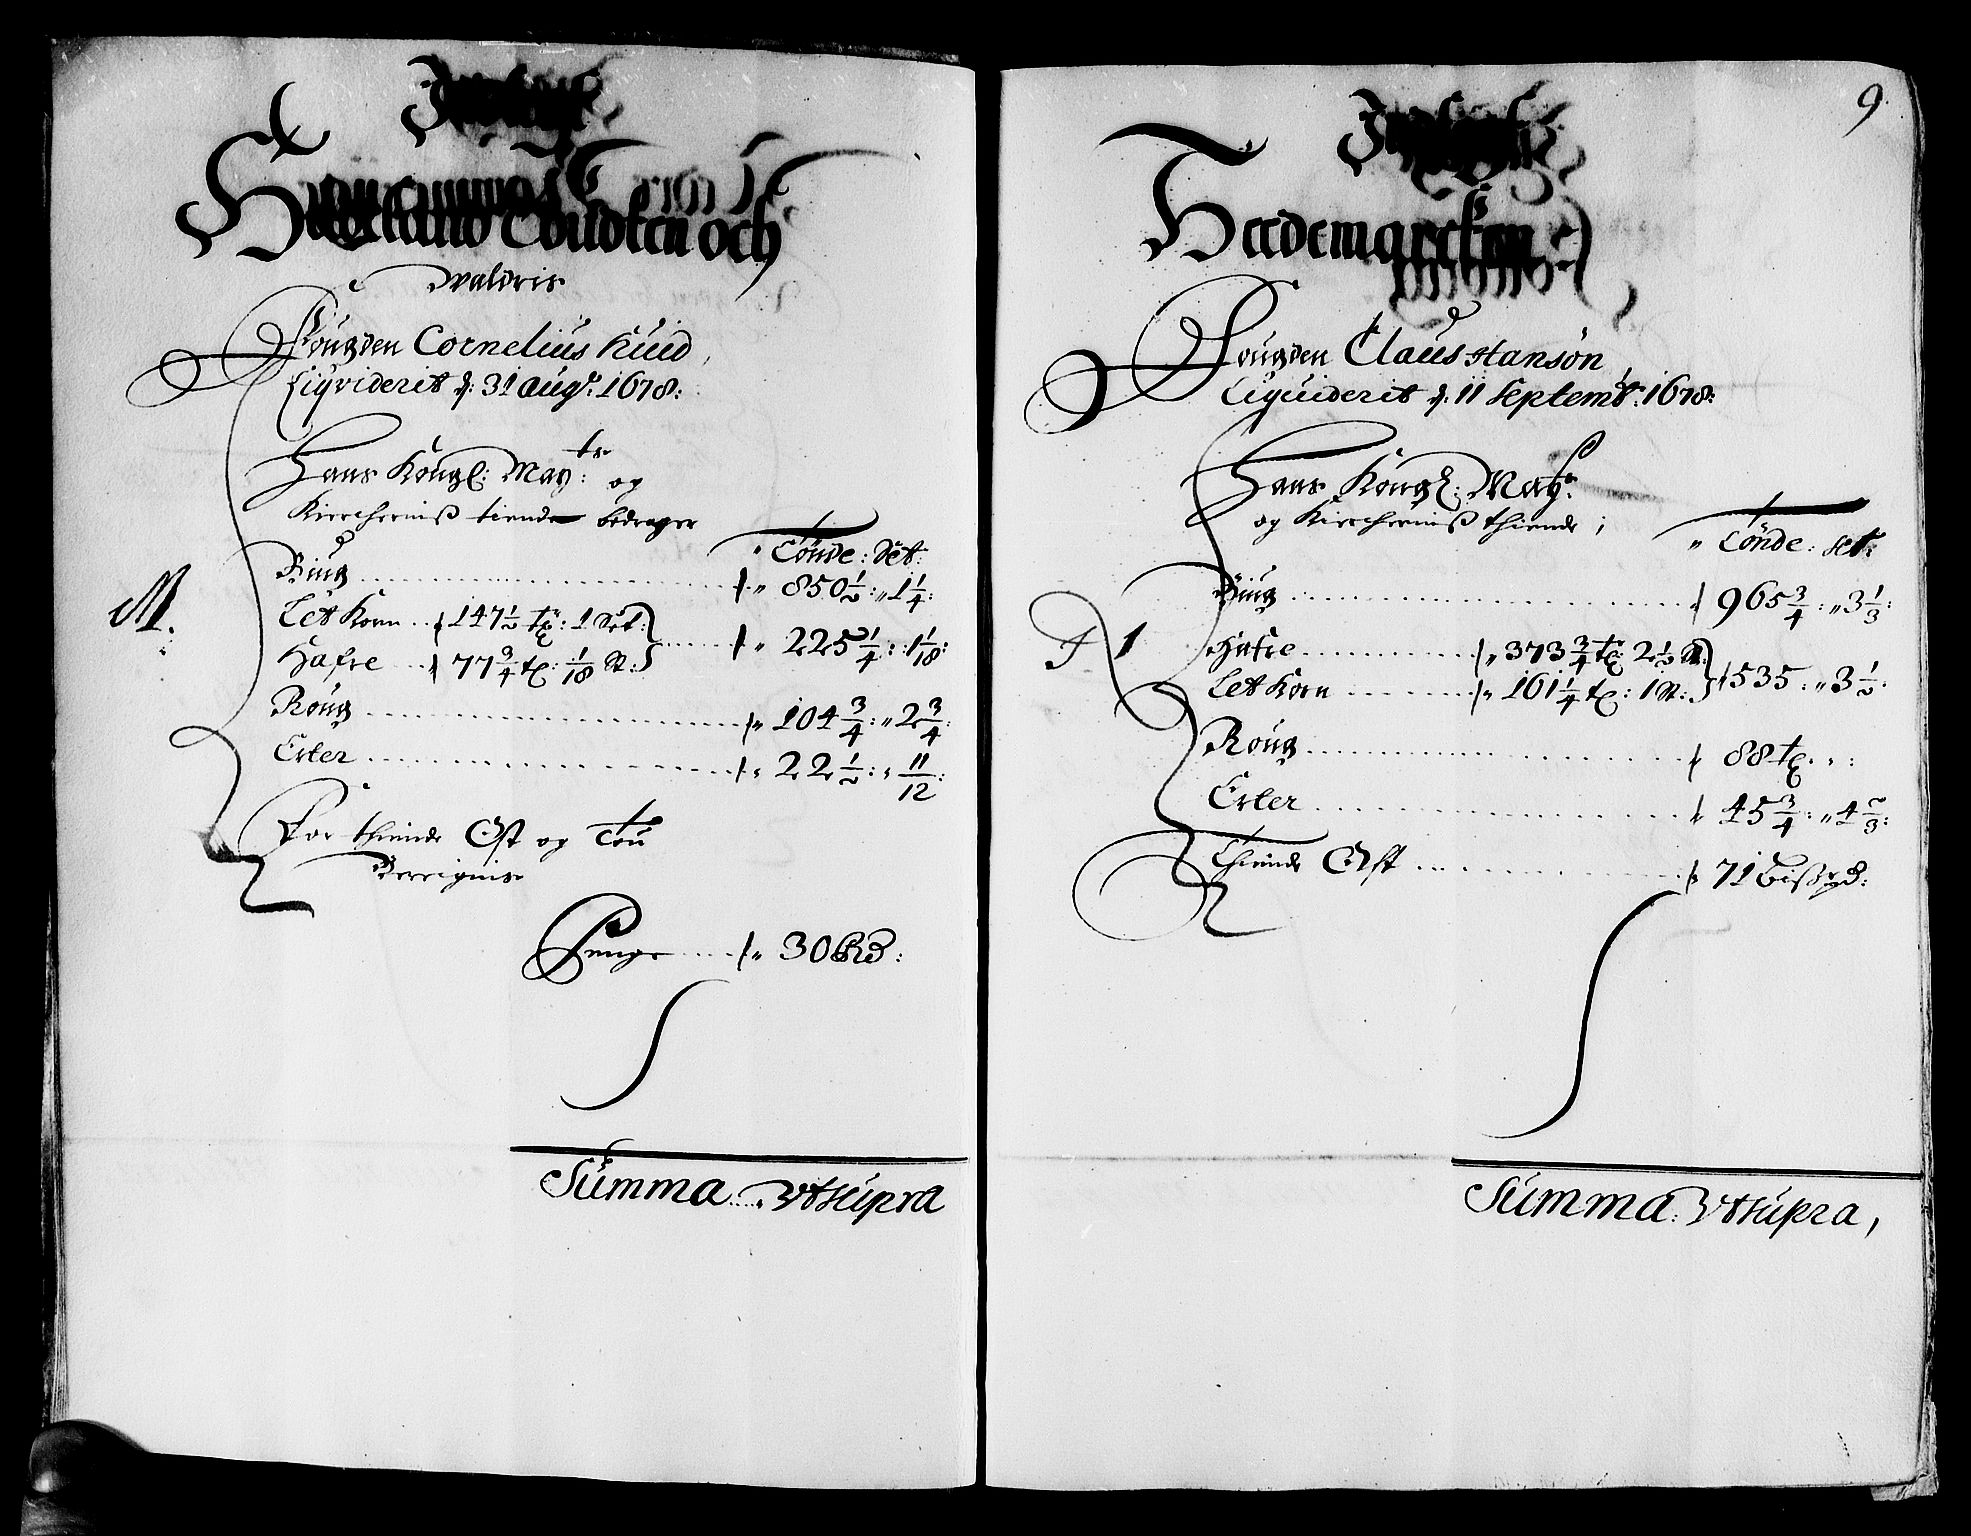 Hadeland Toudten och
Waldris
Fougden Cornelius Kuud
Liqviderit d: 31 Augs: 1678:
Hans Kongl: Mayts: og
Kirchernis tiende bedrager
Tönde: Set:
Biug 850 1/2: 1 1/4:
Let Korn 147 1/2 tr: 1 Set:
Hafre 77 3/4 tr: 1/18 St: 225 1/4: 1 1/18:
M.
Roug 104 3/4: 2 3/4:
Erter 22 1/2: 11/12:
For thiende Ost og Tou
Penge 30 Rd:
Summa Vt supra
9
Heedemarcken
Fougden Claus Hansön
Liquiderit d. 11 Septembr: 1678:
Hans Kongl: Mayts:
og Kirchernis thiende;
Tönde: set:
Biug 965 3/4: 3 1/3:
1 Hafre 373 3/4 tr: 2 1/2 St:
Let Korn 161 1/4 tr: 1 St: 535: 3 1/2:
Roug 88 tr:
Erter 45 3/4: 4 2/3:
Thiende Ost 71 Bispd:
Summa: Vt supra,